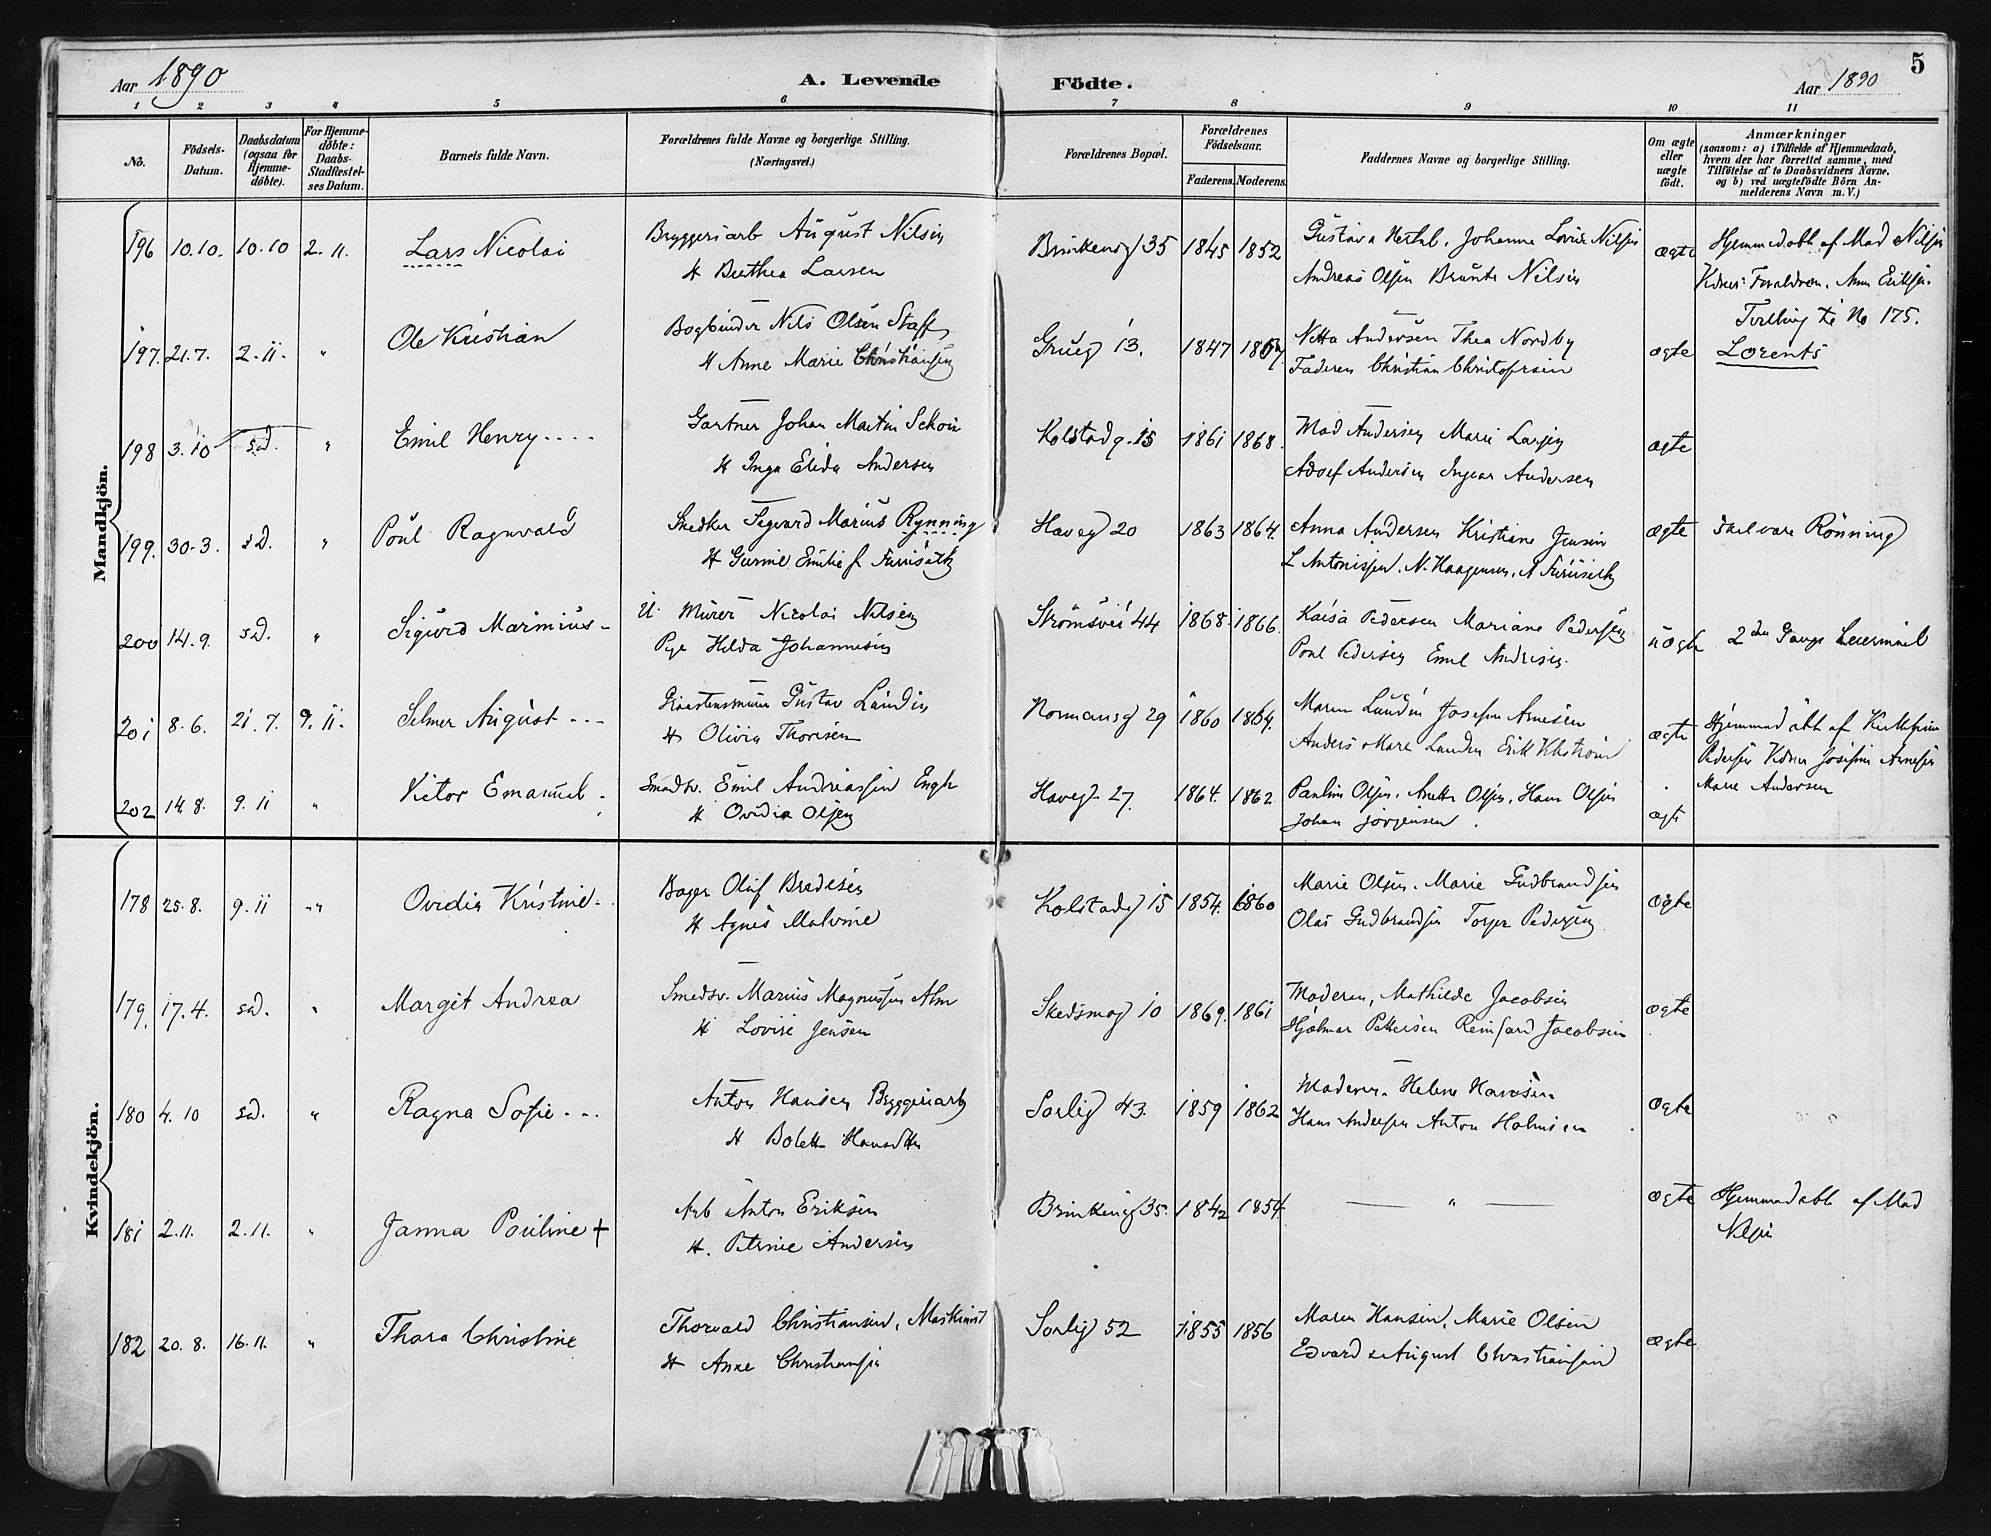 5
Aar 1890
A. Levende Födte.
Aar 1890
1 2 3 4 5 6 7 8 9 10 11
No.
Födsels-Datum.
Daabsdatum (ogsaa for Hjemme-döbte).
For Hjemme-döbte: Daabs-Stadfæstel-ses Datum.
Barnets fulde Navn.
Forældrenes fulde Navne og borgerlige Stilling.
(Næringsvei.)
Forældrenes Bopæl.
Forældrenes Födselsaar.
Faderens. Moderens.
Faddernes Navne og borgerlige Stilling.
Om ægte eller uægte födt.
Anmærkninger
(saasom: a) i Tilfælde af Hjemmedaab,
hvem der har forrettet samme, med
Tilföielse af to Daabsvidners Navne.
og b) ved uægtefödte Börn An-
melderens Navn m. V.)
Mandkjön.
196 10.10. 10.10 2.11. Lars Nicolai Bryggeriarb August Nilsen Brinkeng 35 1845 1852 Johanne Lovise Nilsen ægte Hjemmedöbt af Mad Nilsen
H Berthea Larsen Andreas Olsen Nilsen Forældren. Anna Eriksen
197. 21.7. 2.11. " Ole Kristian Bogbinder Nils Olsen Staff Grüeg 13. 1847 Netta Andersen Thea Nordby ægte Tvilling til No 175.
H Anne Marie Christiansen Faderen Christian Christofersen Lorents
198 3.10 s.d. " Emil Henry Gartner Johan Martin Kolstadg. 15 1861 1868. Mad Andersen Marie Larsen ægte
H Inga Elida Andersen Adolf Andersen Ingvar Andersen
199. 30.3. s.d. " Poul Ragnvald Snedker Segvard Marius Rynning Haveg 20 1863 1864. Anna Andersen Kristiane Jensen ægte skal være Rönning
H Emilie f L Antonissen. N. Haagensen.
200 14.9. s.d. " Sigurd Marinius U. Murer Nicolai Nilsen Strömsvei 44 1868. 1866. Kaisa Pedersen Mariane Pedersen uægte 2den Gangs Leiermaal
Pige Hilda Johannesen Poul Pedersen Emil Andresen.
201 8.6. 21.7. 9.11. Selmer August Gustav Lundin Normansg 29 1860 1864. Maren Lundin Josefine Arnesen ægte Hjemmedöbt af
H Olivia Thoresen Anders Lundin Erik Pedersen Josefine Arnesen
Marie Andersen
202 14.8. 9.11 " Victor Emanuel Smedsv. Emil Andreassen Engh Haveg 27. 1864. 1862. Pauline Olsen. Anette Olsen. Hans Olsen ægte
H Ovidia Olsen Johan Jörgensen.
Kvindekjön.
178 25.8. 9.11 " Ovidia Kristine Bager Oluf Bredesen Kolstadg 15 1854. 1860 Marie Olsen. Marie Gudbrandsen ægte
H Agnes Malvine Olai Gudbrandsen Torger Pedersen
179. 17.4. s.d. " Margit Andrea Smedsv. Marius Magnussen Alm Skedsmog 10 1869. 1861 Moderen, Mathilde Jacobsen ægte
H Lovise Jensen Hjalmar Pettersen Reinhard Jacobsen
180 4.10 s.d. " Ragna Sofie Anton Hansen Bryggeriarb Sorlig 43. 1859 1862 Moderen. Helene ægte
H Bolette Hans Andersen Anton
181 2.11. 2.11. " Janna Pouline + Arb Anton Eriksen Brinkeng 35. 1842 1854. — " — ægte Hjemmedöbt af Mad
H. Petrine Andersen Nilsen
182 20.8. 16.11. " Thora Christine Thorvald Christiansen, Maskinist Sorlig 52 1855 1856 Maren Hansen, Marie Olsen ægte
H Anne Christiansen Edvard & August Christiansen